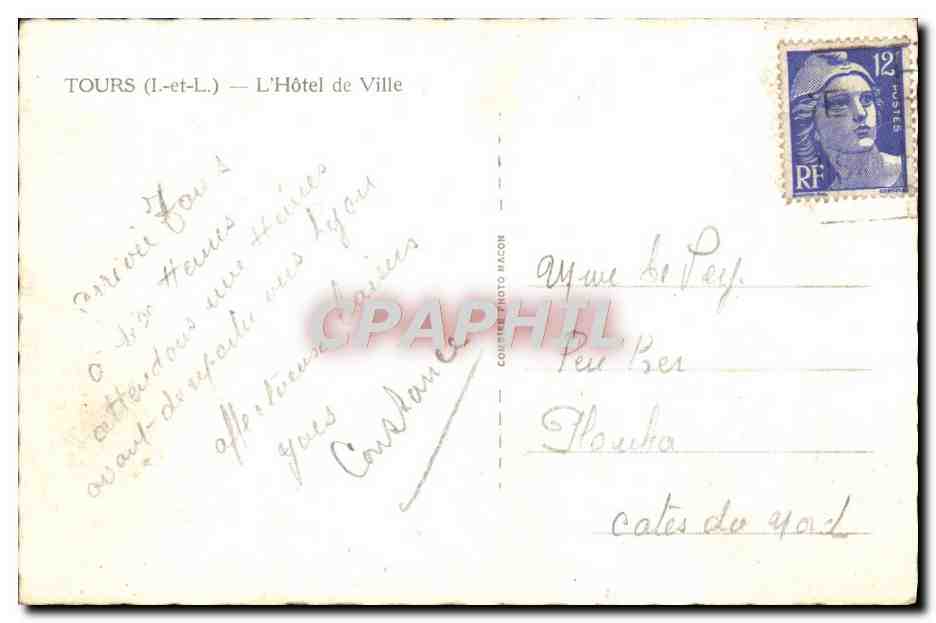 TOURS (I.-et-L.) — L'Hôtel de Ville
12F
POSTES
RF
arrivée Tours
à six Heures
attendons une Heures
avant de repartir vers Lyon
affectueux baisers
Yves
Constance
COMBIER PHOTO MACON
CPAPHIL
Mme Le Pey
Pen Ker
Plouha
Cotes du Nord